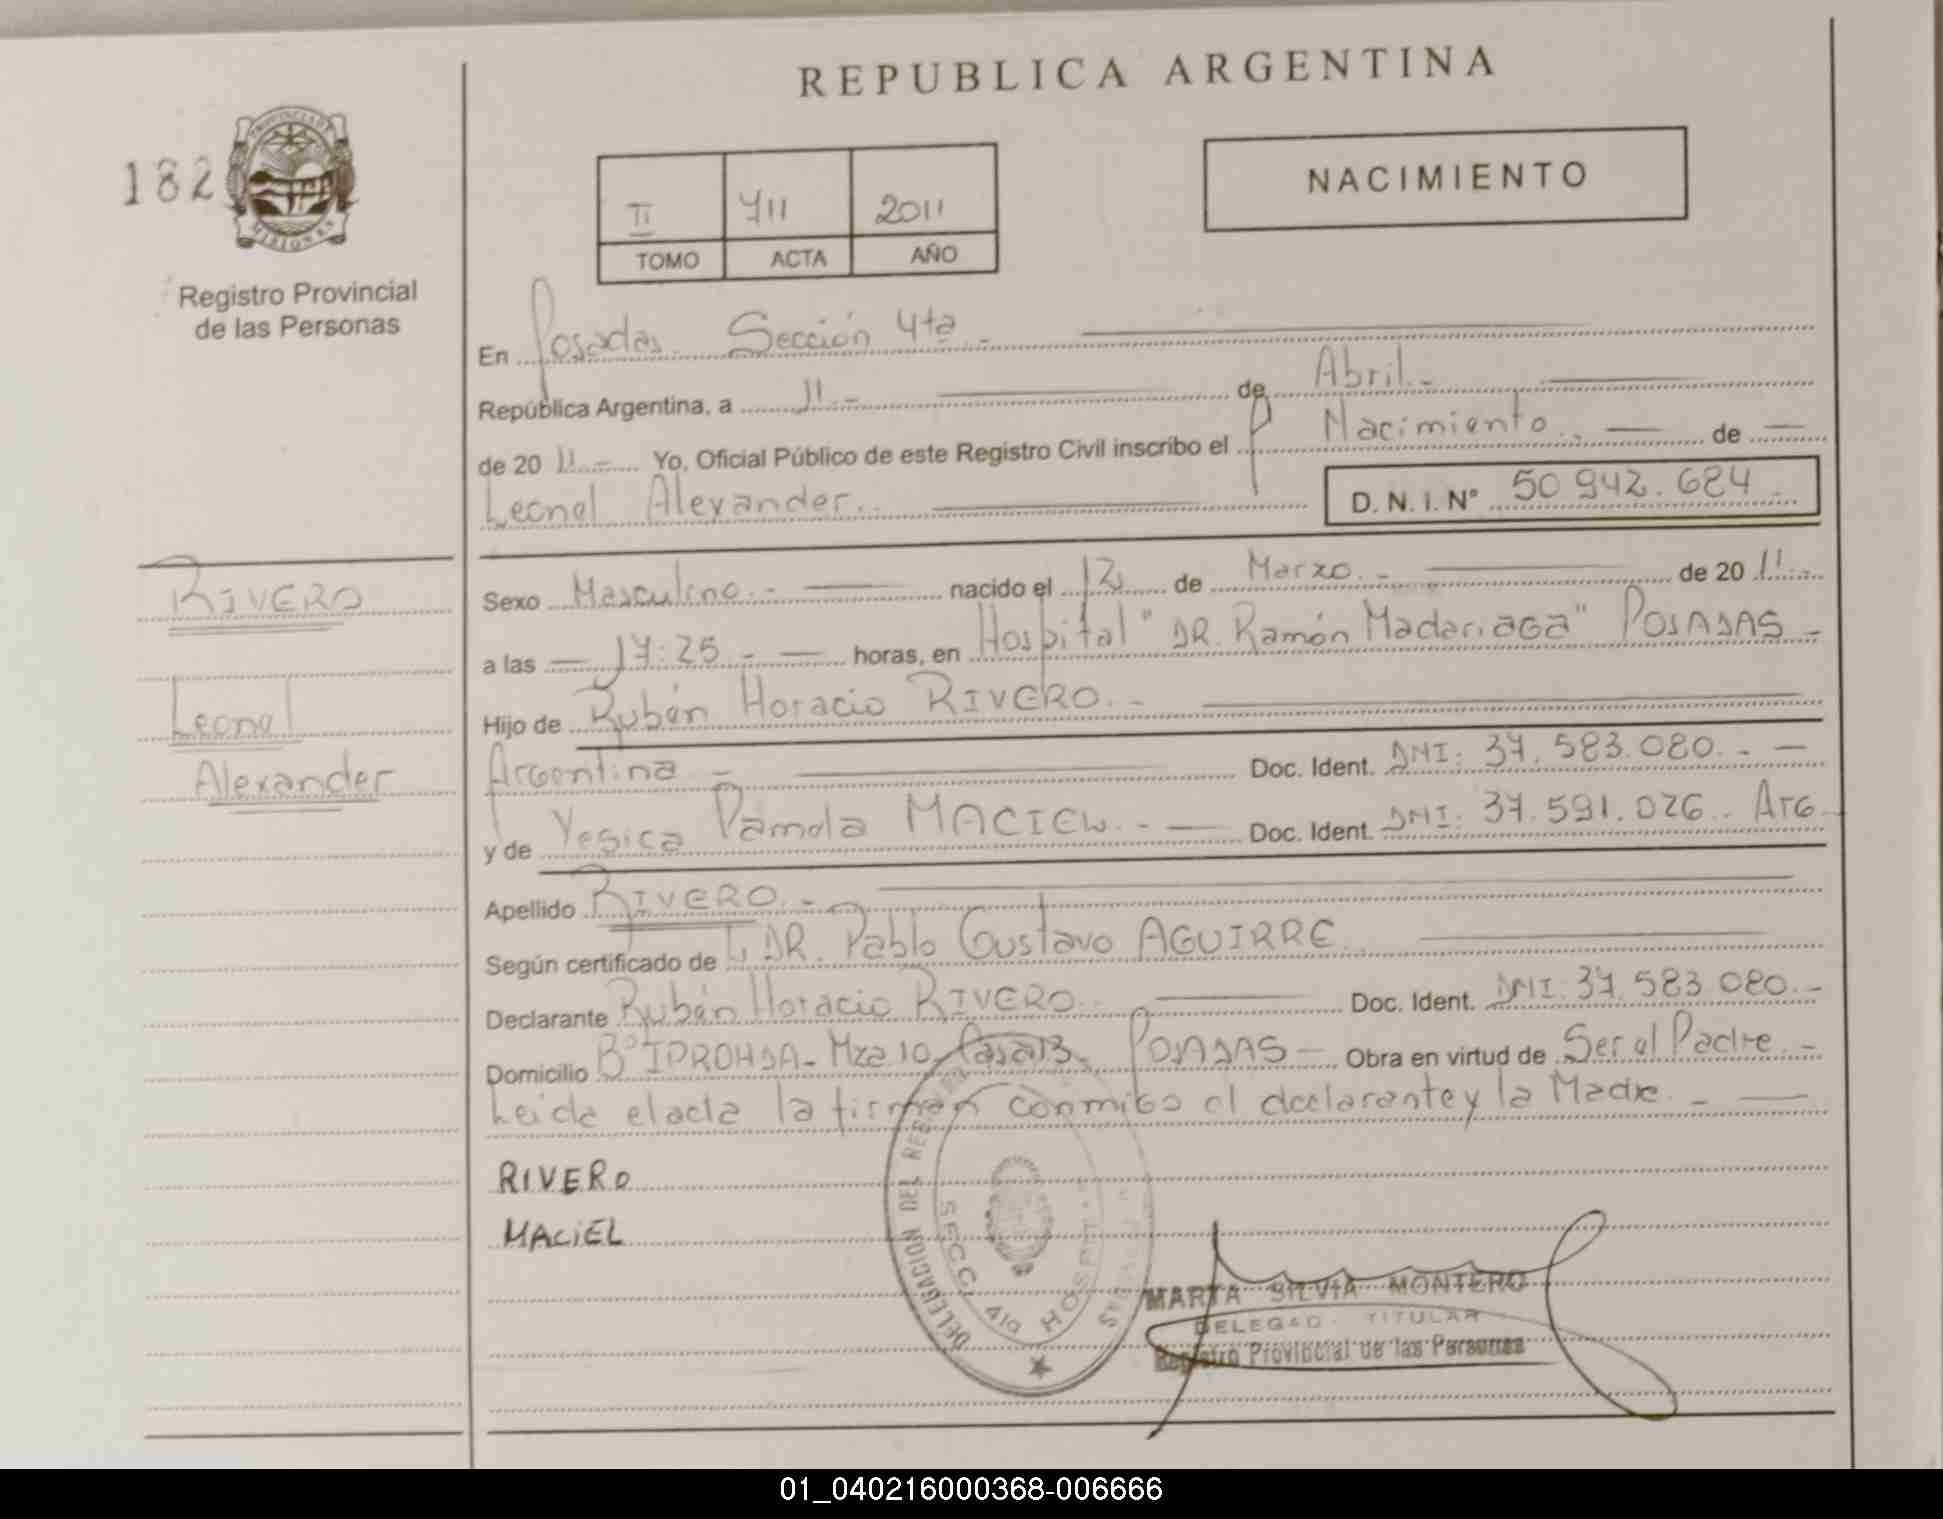 REPUBLICA ARGENTINA
182
PROVINCIA DE
MISIONES
Registro Provincial
de las Personas
II 711 2011
TOMO ACTA AÑO
NACIMIENTO
En Posadas. Sección 4ta.-
República Argentina, a 11.- de Abril.-
de 20 11.- Yo, Oficial Público de este Registro Civil inscribo el Nacimiento.- de
Leonel Alexander. D. N. I. N° 50 942.684.-
RIVERO
Leonel
Alexander
Sexo Masculino.- nacido el 12 de Marzo.- de 20 11.-
a las 17:25.- horas, en Hospital "DR. Ramón Madariaga" POSADAS-
Hijo de Rubén Horacio RIVERO.-
Argentina - Doc. Ident. DNI: 37.583.080.-
y de Yesica Pamela MACIEL.- Doc. Ident. DNI: 37.591.026.. Arg
Apellido RIVERO.-
Según certificado de DR. Pablo Gustavo AGUIRRE
Declarante Rubén Horacio RIVERO.- Doc. Ident. DNI: 37.583.080.-
Domicilio B° IPROHDA- Mza 10 Casa 13- POSADAS- Obra en virtud de Ser el Padre.-
Leida el acta la firman conmigo el declarante y la Madre.-
RIVERO
MACIEL
DELEGACION DEL
SECC. 4ta HOSPIT
MARTA SILVIA MONTERO
DELEGAD TITULAR
Registro Provincial de las Personas
01_040216000368-006666